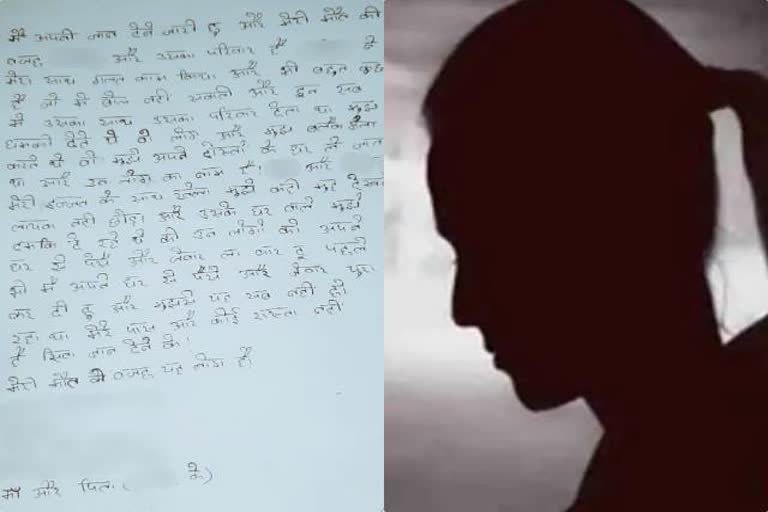 मैं अपनी जान देने जारी हू और मेरी मौत की
वजह और उसका परिवार है ने
मेरा साथ गलत काम किया और भी बहुत कुछ
है जो मैं बोल नही सकती और इन सब
मे उसका साथ उसका परिवार देता था मुझे
धमकी देते थे वो लोग और मुझे
करते थे वो मुझे अपने दोस्तो के घर ले जाता
था और इन लोगो का नाम है। और
मेरी इज्जत के साथ खेला मुझे कही मुह देखने
लायक नही छोड़ा और उसके घर वाले मुझे
धमकि दे रहे थे की इन लोगो को अपने
घर से पैसे और जेवार ला कर दू पहले
भी मैं अपने घर से पैसे और जेवार चुरा
कर दी हू और मुझसे यह सब नही हो
रहा था मेरे पास और कोई रास्ता नही
है सिवा जान देने के।
मेरी मौत की वजह यह लोग है।
माँ और पिता ( के)